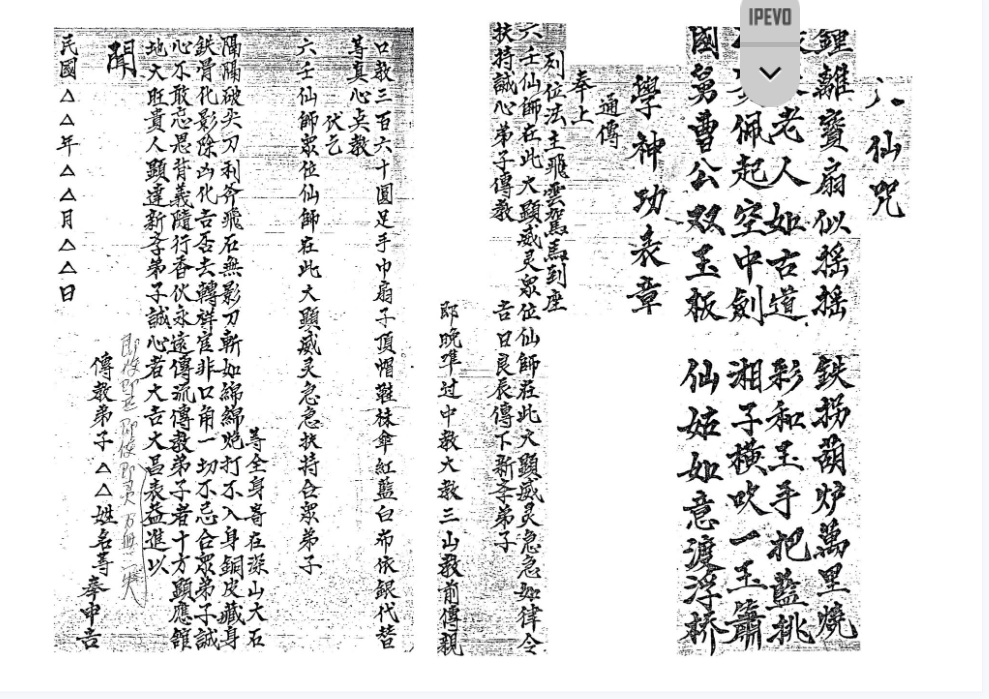 IPEVO
八仙咒
鍾離寶扇似搖搖 鉄拐葫炉萬里燒
老人如古道 彩和玉手把藍挑
佩起空中劍 湘子橫吹一玉簫
國舅曹公双玉板 仙姑如意渡浮桥
學神功表章
通傳
奉上
列位法主飛雲駕馬到座
六壬仙師在此大顯威灵眾位仙師在此大顯威灵急急如律令
扶持誠心弟子傳教 吉日良辰傳下新孝弟子
郎晚準过中教大教三山教前傳親
口教三百六十圓足手巾扇子頂帽鞋袜傘紅藍白布依銀代替
等真心矣教
伏乞
六壬仙師眾位仙師在此大顯威灵急急扶持合眾弟子
等全身寄在深山大石
隔隔破尖刀利斧飛石無影刀斬如綿綿炮打不入身銅皮藏身
鉄骨化影除凶化吉否去轉祥官非口角一切不忌合眾弟子誠
心不敢忘恩背義隨行香伙永遠傳流傳教弟子者十方顯應館
地大旺貴人顯達新孝弟子誠心者大吉大昌表益進以
聞
傳教弟子△△姓名等奉申吉
民國△△年△△月△△日